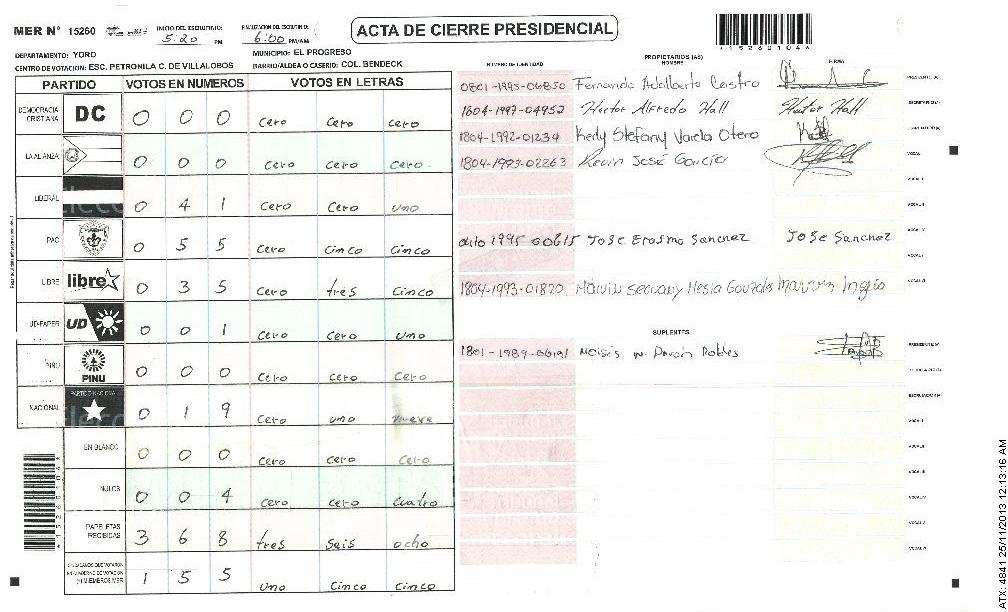 MER N° 15260
INICIO DEL ESCRUTINIO: 5:20 PM
FINALIZACION DEL ESCRUTINIO: 6:00 PM/AM
ACTA DE CIERRE PRESIDENCIAL
DEPARTAMENTO: YORO
MUNICIPIO: EL PROGRESO
CENTRO DE VOTACION: ESC. PETRONILA C. DE VILLALOBOS
BARRIO/ALDEA O CASERIO: COL. BENDECK
PARTIDO VOTOS EN NUMEROS VOTOS EN LETRAS
DEMOCRACIA CRISTIANA DC 0 0 0 cero cero cero
LA ALIANZA 0 0 0 cero cero cero
LIBERAL 0 4 1 cero cero uno
PAC 0 5 5 cero cinco cinco
LIBRE libre 0 3 5 cero tres cinco
UD-FAPER UD 0 0 1 cero cero uno
PINU PINU 0 0 0 cero cero cero
NACIONAL PARTIDO NACIONAL 0 1 9 cero uno nueve
EN BLANCO 0 0 0 cero cero cero
NULOS 0 0 4 cero cero cuatro
PAPELETAS RECIBIDAS 3 6 8 tres seis ocho
CIUDADANOS QUE VOTARON EN CUADERNO DE VOTACION (+) MIEMBROS MER 1 5 5 uno cinco cinco
PROPIETARIOS (AS)
NUMERO DE IDENTIDAD NOMBRE FIRMA
0801-1995-06850 Fernando Adalberto Castro PRESIDENTE (A)
1804-1997-04952 Hector Alfredo Hall Hector Hall SECRETARIO (A)
1804-1992-01234 Kedy Stefany Varela Otero ESCRUTADOR (A)
1804-1993-02263 Kevin José García VOCAL I
VOCAL II
VOCAL III
1995 00615 Jose Erasmo Sanchez Jose Sanchez VOCAL IV
VOCAL V
1804-1993-01820 VOCAL VI
SUPLENTES
1801-1989- Moises Robles PRESIDENTE (A)
SECRETARIO (A)
ESCRUTADOR (A)
VOCAL I
VOCAL II
VOCAL III
VOCAL IV
VOCAL V
VOCAL VI
ATX: 4841 25/11/2013 12:13:16 AM